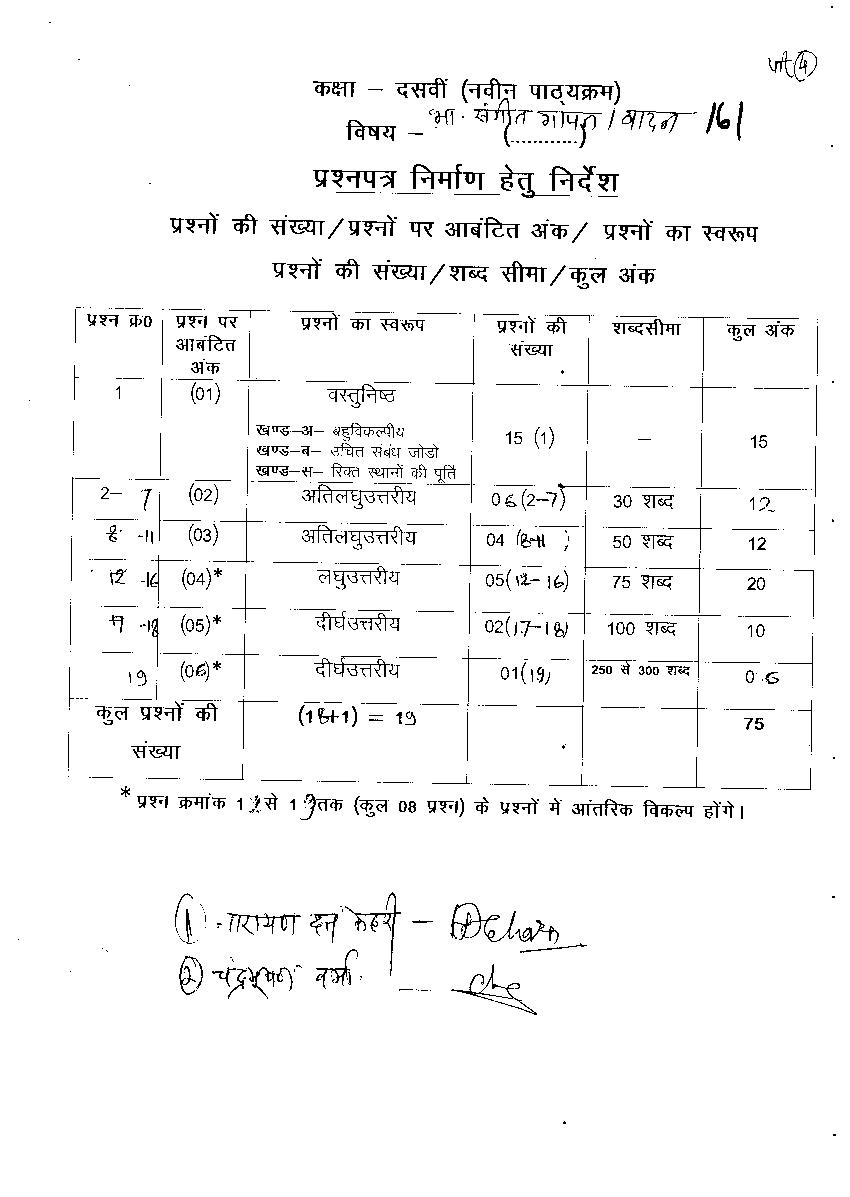 परि (4)
कक्षा – दसवीं (नवीन पाठ्यक्रम)
विषय – भा. संगीत गायन / वादन 161
(............)
प्रश्नपत्र निर्माण हेतु निर्देश
प्रश्नों की संख्या/प्रश्नों पर आबंटित अंक/ प्रश्नों का स्वरूप
प्रश्नों की संख्या/शब्द सीमा/कुल अंक
प्रश्न क्र0 प्रश्न पर आबंटित अंक प्रश्नों का स्वरूप प्रश्नों की संख्या शब्दसीमा कुल अंक
1 (01) वस्तुनिष्ठ
खण्ड–अ– बहुविकल्पीय 15 (1) – 15
खण्ड–ब– उचित संबंध जोडो
खण्ड–स– रिक्त स्थानों की पूर्ति
2– 7 (02) अतिलघुउत्तरीय 06 (2–7) 30 शब्द 12
8 -11 (03) अतिलघुउत्तरीय 04 (8-11) 50 शब्द 12
12 -16 (04)* लघुउत्तरीय 05(12–16) 75 शब्द 20
17 -18 (05)* दीर्घउत्तरीय 02(17–18) 100 शब्द 10
19 (06)* दीर्घउत्तरीय 01(19) 250 से 300 शब्द 06
कुल प्रश्नों की संख्या (18+1) = 19 75
* प्रश्न क्रमांक 12 से 19 तक (कुल 08 प्रश्न) के प्रश्नों में आंतरिक विकल्प होंगे।
(1) नारायण दत्त –
(2) चंद्रभूषण वर्मा –